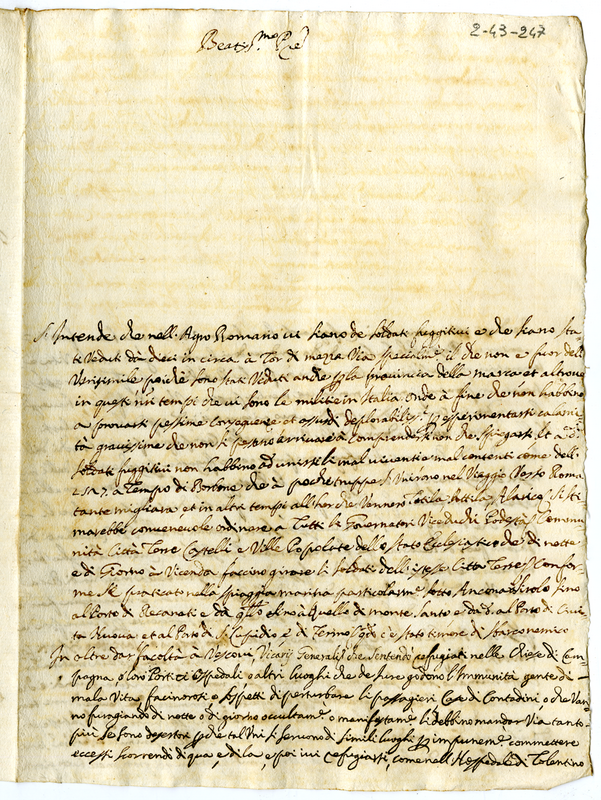 2-43-247
Beatis.mo Pre
Si Intende che nell'Agro Romano vi siano de soldati fuggitivi e che siano sta
ti Veduti da dieci in circa à Tor di mezza Via specialm.e il che non e fuor del
Verisimile poiche sono stati Veduti anche la Provincia della marca et altroue
in questi tempi che vi sono le militie in Italia onde à fine che non habbino
a provarsi pessime Conseguenze et assurdi deplorabili esperimentarsi calami
tà gravissime che non si possono arrivare à Comprendersi non che spiegarsi et a
soldati fuggitivi non habbino ad unirsi li mal viventi e mal contenti come del
1527. à Tempo di Borbone che à poche truppe si Unirono nel Viaggio Verso Roma
tante migliara et in altri tempi allor che Vennero Totila Attila Alarico Si sti
marebbe convenevole ordinare a Tutti li Governatori Viceduchi Podestà Commu
nità Città Terre Castelli e Ville Popolate dello Stato Ecclesiastico che di notte
e di Giorno à Vicenda faccino girare li soldati dell'istesse Città Terre Confor
me si è praticato nella spiaggia marina particolarm.e sotto Ancona Sirolo sino
al Porto di Recanati e da à quello di monte Santo e da al Porto di Civi
ta Nuova et al Porto di S. Elpidio e di Fermo è stato timore di sbarco nemico
In oltre dar facoltà à Vescovi, Vicarij Generali che sentendo refugiati nelle Chiese di Cam
pagna o loro Portici ospedali o altri luoghi che de jure godono l'Immunità gente di
mala Vita, facinorosi o sospetti di perturbare li passagieri Case di Contadini o che Van
no furagiando di notte o di giorno occultam.e o manifestam.e li debbino mandar Via tanto
più se sono desertori che tal Uni si servono di simili luoghi impunem.e commettere
eccessi scorrendo di qua, e di la, e poi ivi refugiarsi, come nell'Hospedale di Tolentino